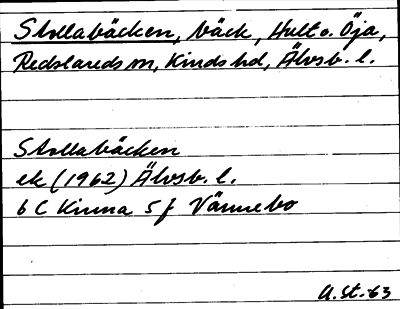 Stollabäcken, bäck, Hult o. Öja,
Redslareds sn, Kinds hd, Älvsb. l.
Stollabäcken
ek (1962) Älvsb. l.
6 C Kinna 5 f Vännebo
U.St.-63